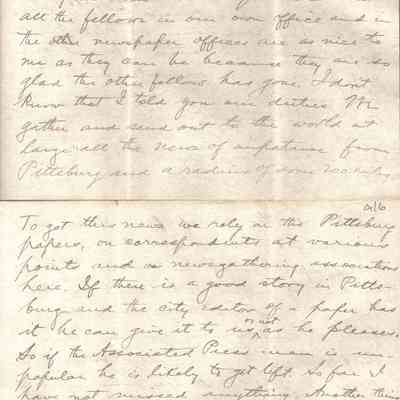 all the fellows in our own office and in
the other newspaper offices are as nice to
me as they can be because they are so
glad the other fellow has gone. I don't
know that I told you our duties. We
gather and send out to the world at
large all the news of importance from
Pittsburg and a radius of some 100 miles
To get this news we rely on the Pittsburg
papers, on correspondents at various
points and a newsgathering association
here. If there is a good story in Pitts-
burg and the city editor of a paper has
it he can give it to us or not as he pleases.
So if the Associated Press man is un-
popular he is likely to get left. So far I
have not missed anything. Another thing